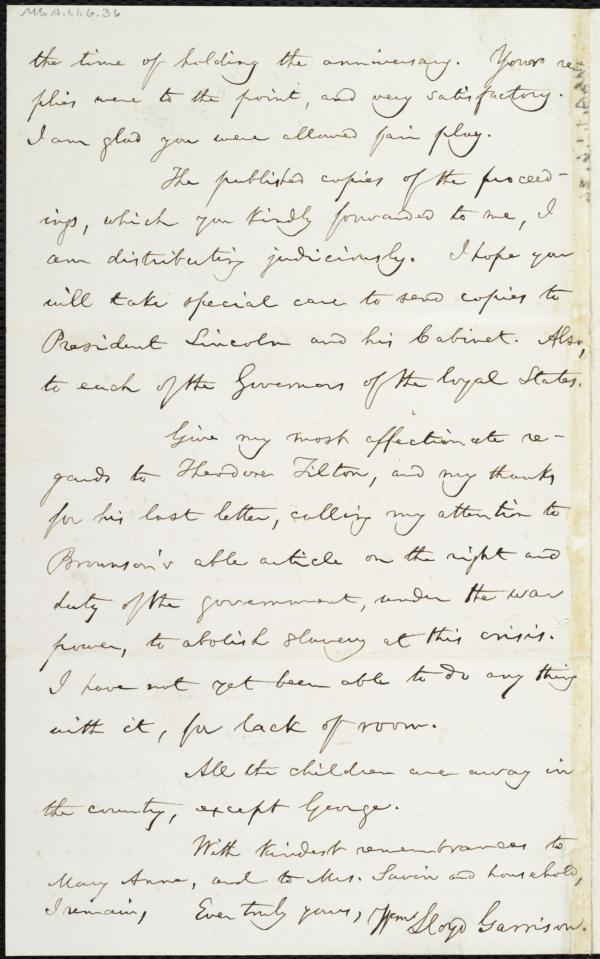 Ms.A.1.1.6.36
the time of holding the anniversary. Your re-
plies were to the point, and very satisfactory.
I am glad you were allowed fair play.
The published copies of the proceed-
ings, which you kindly forwarded to me, I
am distributing judiciously. I hope you
will take special care to send copies to
President Lincoln and his Cabinet. Also,
to each of the Governors of the loyal States.
Give my most affectionate re-
gards to Theodore Tilton, and my thanks
for his last letter, calling my attention to
Brownson's able article on the right and
duty of the government, under the war
power, to abolish slavery at this crisis.
I have not yet been able to do any thing
with it, for lack of room.
All the children are away in
the country, except George.
With kindest remembrances to
Mary Anna, and to Mrs. Savin and household,
I remain, Ever truly yours, Wm. Lloyd Garrison.